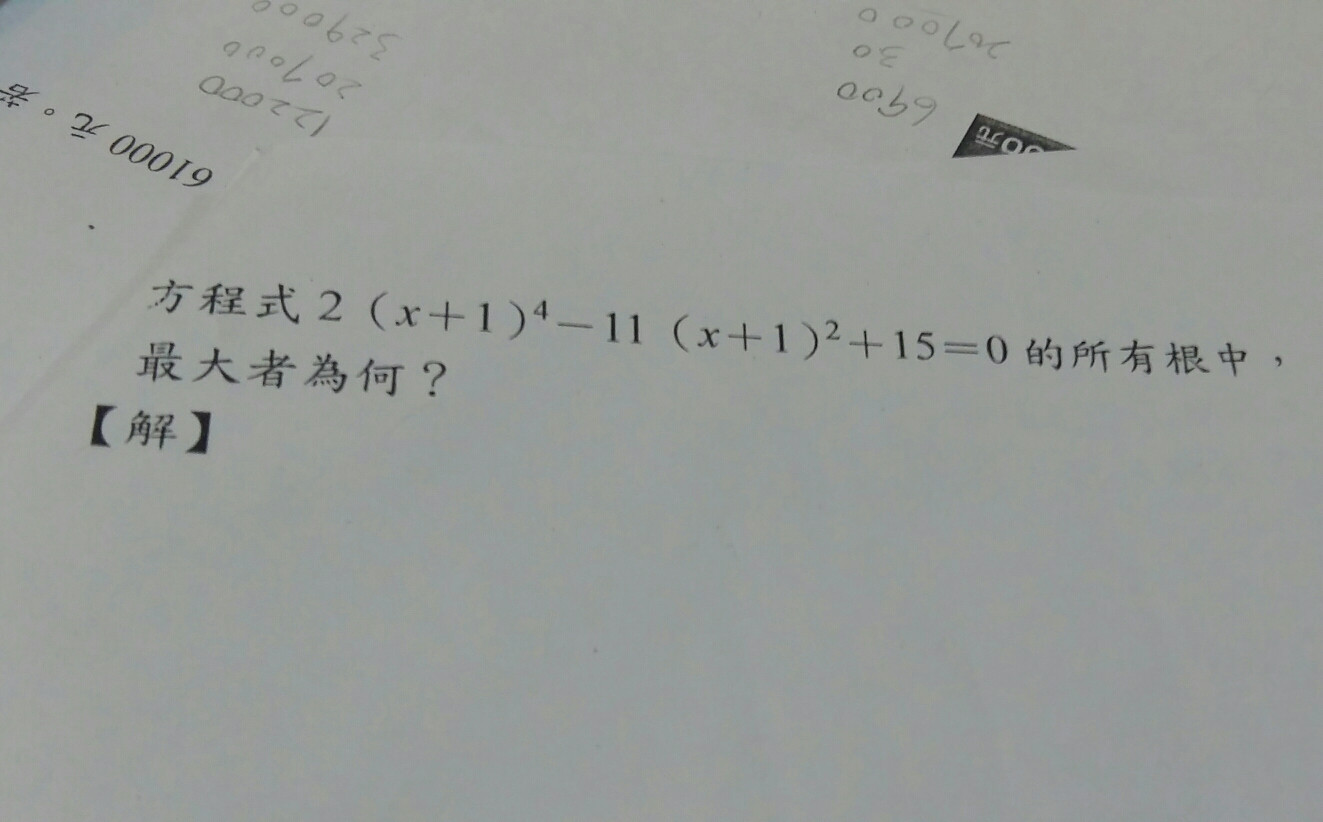 329000
207000
122000
207000
30
6900
61000 元。若
00元
方程式 2 (x+1)⁴－11 (x+1)²+15=0 的所有根中，
最大者為何？
【解】